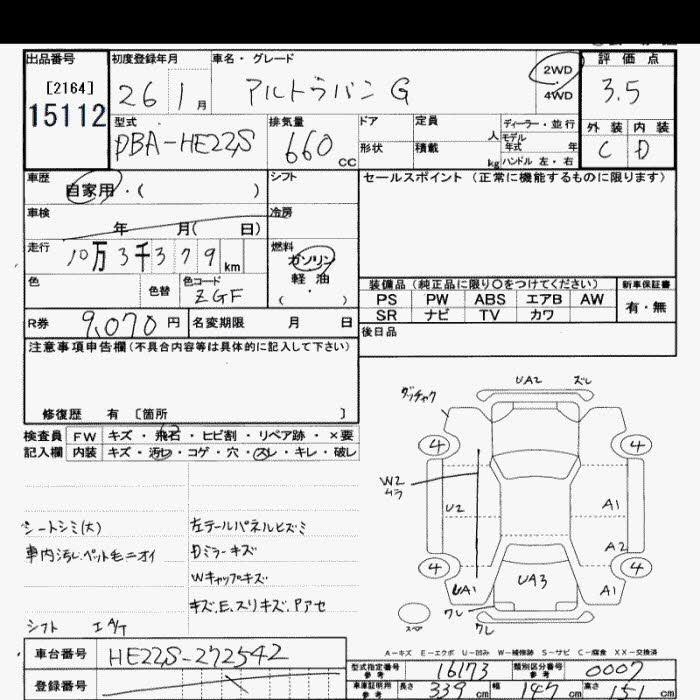 出品番号 初度登録年月 車名・グレード 2WD 評価点
[2164] 26 1月 アルトラパン G ・ 3.5
15112 4WD
型式 排気量 ドア 定員 ディーラー・並行 外装 内装
DBA-HE22S 660 CC 人 モデル年式 年 C D
形状 積載 kg ハンドル 左・右
車歴 自家用・( ) シフト セールスポイント (正常に機能するものに限ります)
車検 年 月( 日) 冷房
走行 10万3千379 km 燃料 ガソリン
軽油
( ・ )
色 色替 色コード ZGF
装備品 (純正品に限り○をつけてください) 新車保証書
PS PW ABS エアB AW 有・無
SR ナビ TV カワ
R券 9,070 円 名変期限 月 日 後日品
注意事項申告欄(不具合内容等は具体的に記入して下さい)
修復歴 有 〔箇所 〕
検査員 FW キズ・飛石・ヒビ割・リペア跡・×要
記入欄 内装 キズ・汚れ・コゲ・穴・スレ・キレ・破レ
シートシミ(大) 左テールパネルヒズミ
車内汚レ、ペット毛ニオイ Dミラーキズ
Wキャップキズ
キズ、E、スリキズ、Pアセ
シフト IA/T
UA2 ズレ
4 4
W2
ムラ
U2 A1
A2
4 4
UA1 UA3 A1
ワレ
ワレ
スペア
A-キズ E-エクボ U-凹み W-補修跡 S-サビ C-腐食 XX-交換済
車台番号 HE22S-272542
登録番号
型式指定番号 参考 16173 類別区分番号 参考 0007
車庫証明用 参考 長さ 339 cm 幅 147 cm 高さ 151 cm